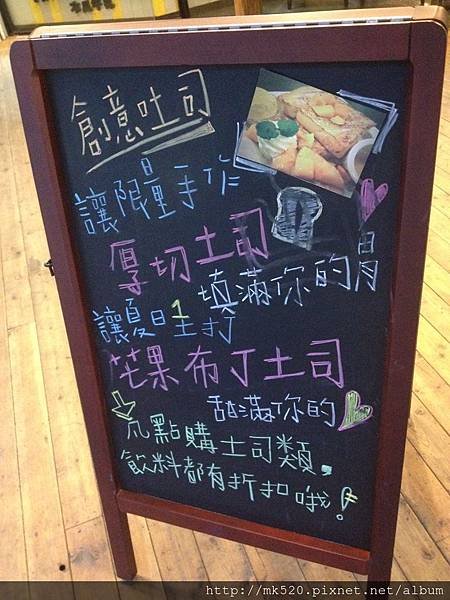 創意吐司
讓限量手作
厚切土司
填滿你的胃
讓夏日主打
芒果布丁土司
甜滿你的
凡點購土司類,
飲料都有折扣哦!
http://mk520.pixnet.net/album